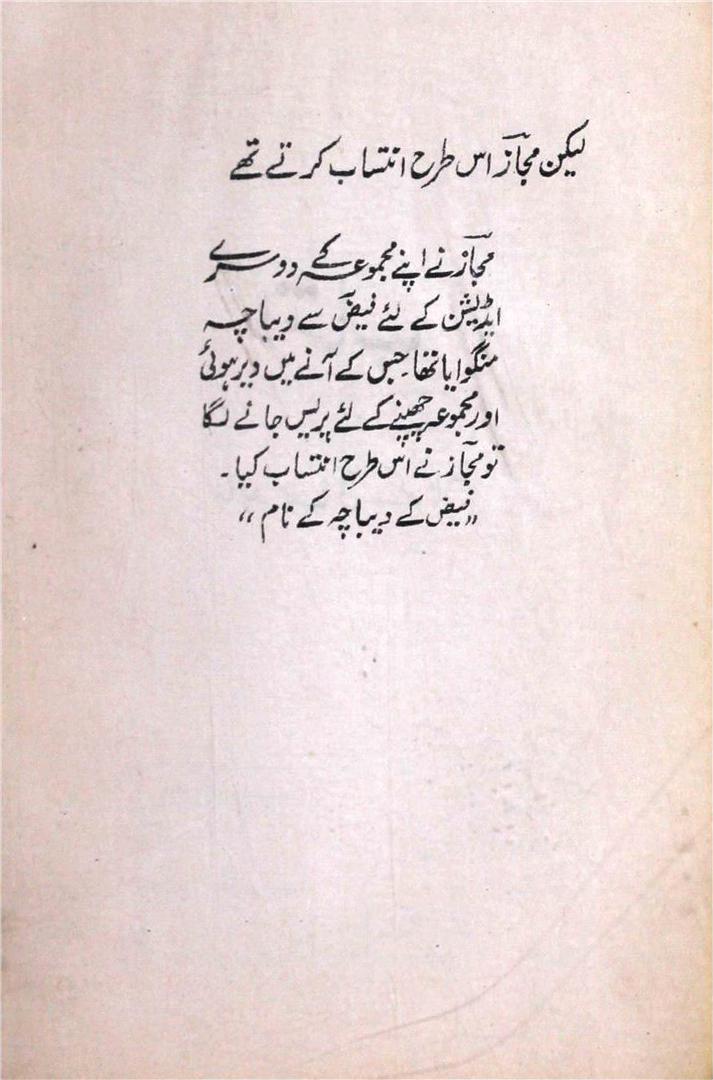 لیکن مجازؔ اس طرح انتساب کرتے تھے
مجازؔ نے اپنے مجموعہ کے دوسرے
ایڈیشن کے لئے فیضؔ سے دیباچہ
منگوایا تھا۔ جس کے آنے میں دیر ہوئی
اور مجموعہ چھپنے کے لئے پریس جانے لگا
تو مجازؔ نے اس طرح انتساب کیا۔
”فیض کے دیباچہ کے نام“